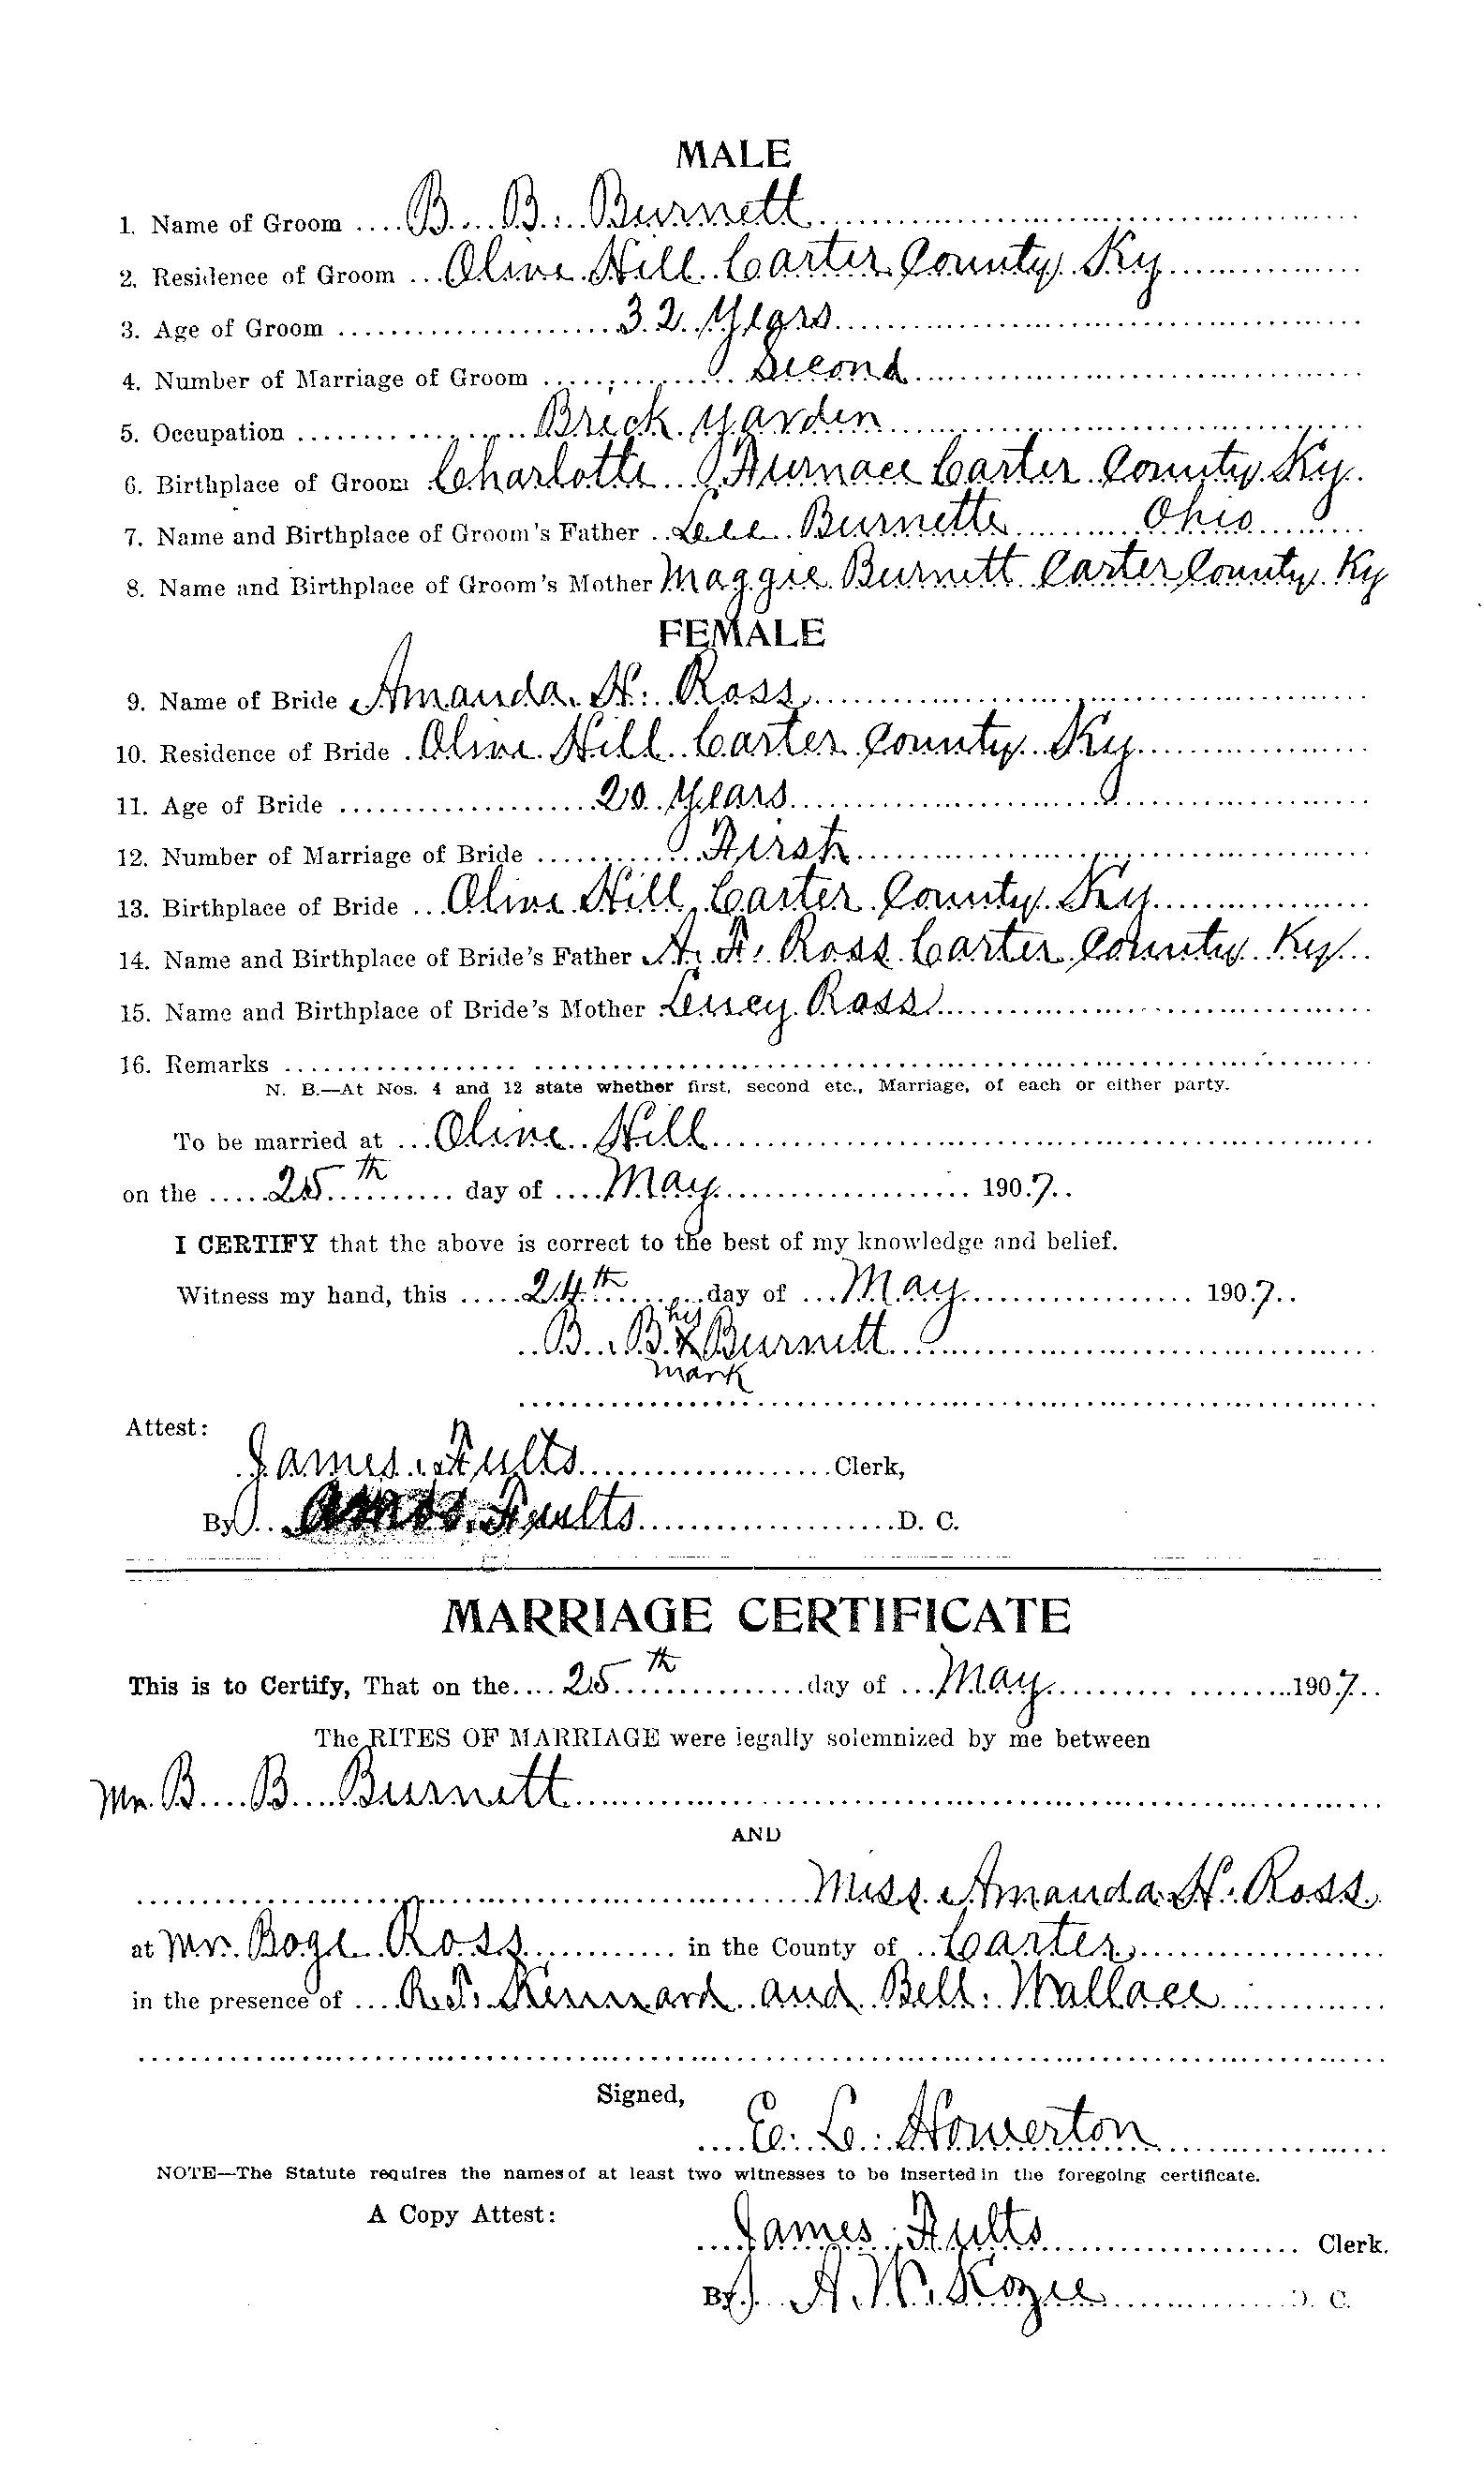 MALE
1. Name of Groom .... B. B. Burnett
2. Residence of Groom ... Olive Hill Carter County Ky
3. Age of Groom ... 32 Years
4. Number of Marriage of Groom ... Second
5. Occupation ... Brick Yarden
6. Birthplace of Groom Charlotte Furnace Carter County Ky.
7. Name and Birthplace of Groom's Father .. Lee Burnette ... Ohio
8. Name and Birthplace of Groom's Mother Maggie Burnett Carter County Ky
FEMALE
9. Name of Bride Amanda H. Ross
10. Residence of Bride . Olive Hill Carter County Ky
11. Age of Bride ... 20 Years
12. Number of Marriage of Bride ... First
13. Birthplace of Bride ... Olive Hill Carter County Ky
14. Name and Birthplace of Bride's Father A. F. Ross Carter County Ky
15. Name and Birthplace of Bride's Mother Ross
16. Remarks ...
N. B.—At Nos. 4 and 12 state whether first, second etc., Marriage, of each or either party.
To be married at ... Olive Hill
on the ..... 25th ... day of .... May ... 1907..
I CERTIFY that the above is correct to the best of my knowledge and belief.
Witness my hand, this ..... 24th ... day of ... May ... 1907..
his
B. B. X Burnett
mark
Attest:
James Fults ... Clerk,
By ... Amos Fults ... D. C.
MARRIAGE CERTIFICATE
This is to Certify, That on the.... 25th ... day of ... May ... 1907..
The RITES OF MARRIAGE were legally solemnized by me between
Mr. B. B. Burnett
AND
Miss Amanda H. Ross
at Mr. Boge Ross ... in the County of .. Carter
in the presence of .... R. T. Kennard and Bell Wallace
Signed,
E. L. Howerton
NOTE—The Statute requires the names of at least two witnesses to be inserted in the foregoing certificate.
A Copy Attest:
James Fults ... Clerk.
By A. W. Kozee ... D. C.